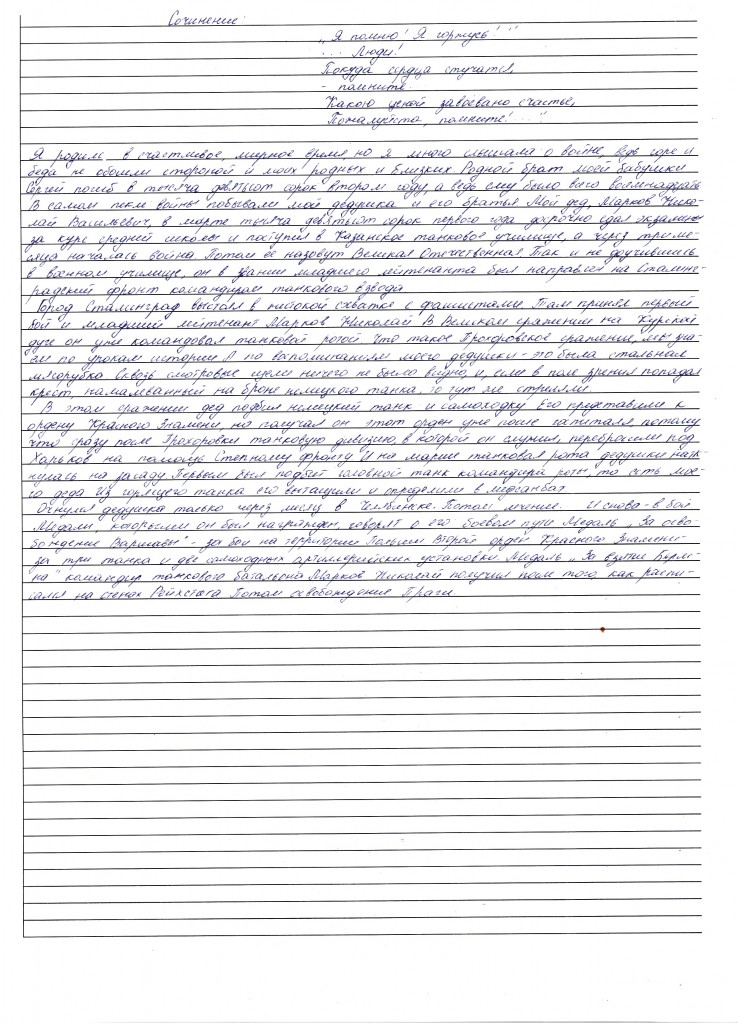 Сочинение:
"Я помню! Я горжусь!"
... Люди!
Покуда сердца стучатся,
- помните.
Какою ценой завоёвано счастье,
Пожалуйста, помните!..."
Я родилс в счастливое, мирное время, но я много слышала о войне, ведь горе и
беда не обошли стороной и моих родных и близких. Родной брат моей бабушки
Сергей погиб в тысяча девятьсот сорок втором году, а ведь ему было всего восемнадцать
В самом пекле войны побывали мой дедушка и его братья Мой дед, Марков Нико-
лай Васильевич, в марте тысяча девятьсот сорок первого года досрочно сдал экзамены
за курс средней школы и поступил в Казанское танковое училище, а через три ме-
сяца началась война Потом её назовут Великая Отечественная Так и не доучившись
в военном училище, он в звании младшего лейтенанта был направлен на Сталинг-
радский фронт командиром танкового взвода
Город Сталинград выстоял в жестокой схватке с фашистами. Там принял первый
бой и младший лейтенант Марков Николай В Великом сражении на Курской
дуге он уже командовал танковой ротой Что такое Прохоровское сражение, мы зна-
ем по урокам истории А по воспоминаниям моего дедушки - это была стальная
мясорубка Сквозь смотровые щели ничего не было видно, и, если в поле зрения попадал
крест, намалёванный на броне немецкого танка, то тут же стреляли
В этом сражении дед подбил немецкий танк и самоходку Его представили к
ордену Красного Знамени, но получал он этот орден уже после госпиталя, потому
что сразу после Прохоровки танковую дивизию, в которой он служил, перебросили под
Харьков на помощь Степному фронту И на марше танковая рота дедушки натк-
нулась на засаду Первым был подбит головной танк командира роты, то есть мое-
го деда Из горящего танка его вытащили и определили в медсанбат
Очнулся дедушка только через месяц в Челябинске. Потом лечение. И снова - в бой
Медали, которыми он был награждён, говорят о его боевом пути Медаль "За осво-
бождение Варшавы" - за бои на территории Польши Второй орден Красного Знамени -
за три танка и две самоходных артиллерийских установки Медаль "За взятие Берли-
на" командир танкового батальона Марков Николай получил после того, как распи-
сался на стенах Рейхстага Потом освобождение Праги.